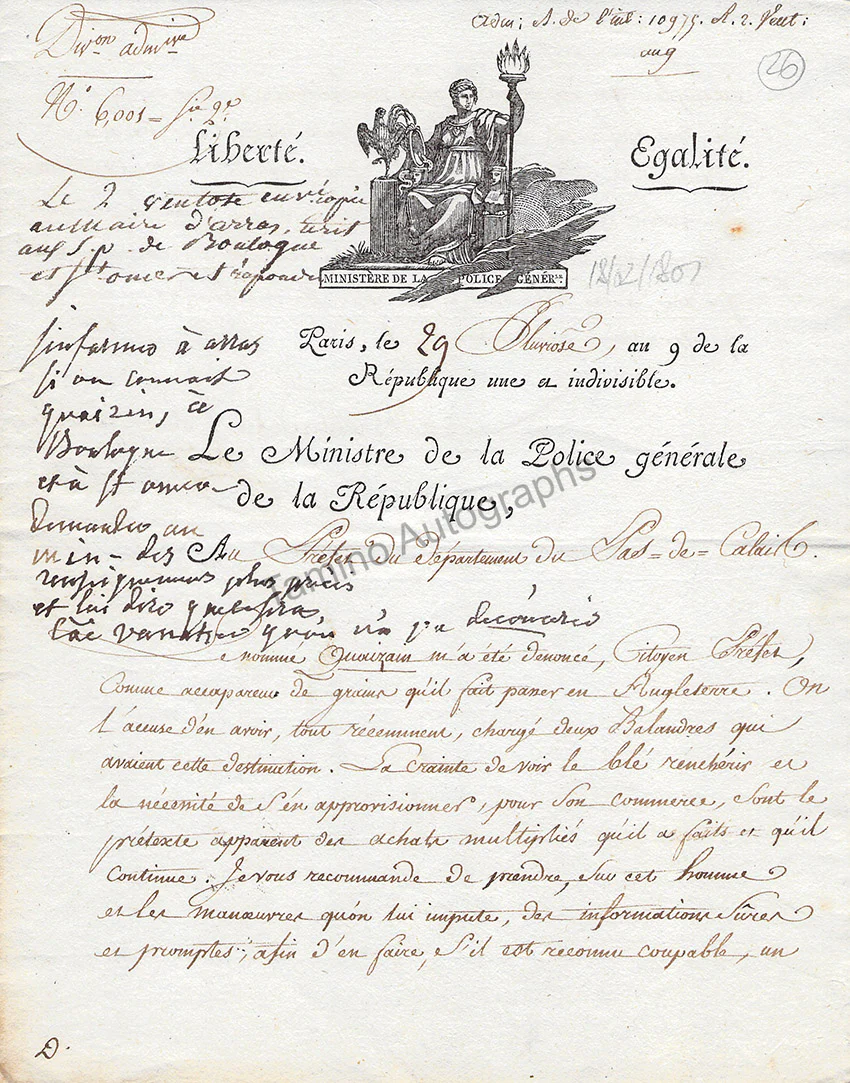 Div.on adm.ive
adm: A. de l'int: 10975. A. 2. Vent:
an 9
26
N.o 6,001 = S.ie 2.e
Liberté.
Egalité.
Le 2 ventose envoyé copie
au maire d'arras, écrit
aux s.p de Boulogne
et St omer et répondu
MINISTÈRE DE LA POLICE GÉNÉR.LE
18/2/1801
Paris, le 29 Pluviose, an 9 de la
République une et indivisible.
s'informer à arras
si on connait
quaizin, à
Boulogne
et à St omer
demander au
min- des
renseignemens plus précis
et lui dire
qu'on n'a pu découvrir
Le Ministre de la Police générale
de la République,
Au Préfet du département du Pas=de=Calais.
Le nommé Quaizain m'a été dénoncé, Citoyen Préfet,
comme accapareur de grains qu'il fait passer en Angleterre. On
l'accuse d'en avoir, tout récemment, chargé deux Balandres qui
avaient cette destination. La crainte de voir le blé renchérir et
la nécessité de s'en approvisionner, pour son commerce, sont le
prétexte apparent des achats multipliés qu'il a faits et qu'il
continue. Je vous recommande de prendre, sur cet homme
et les manœuvres qu'on lui impute, des informations sûres
et promptes; afin d'en faire, s'il est reconnu coupable, un
D.
Tamino Autographs